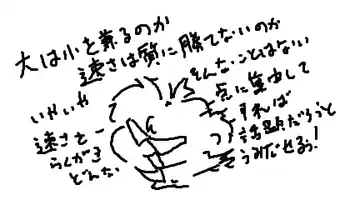 大は小を兼るのか
速さは質に勝てないのか
いやいや
そんなことはない
速さを
らくがき
どんな
点に集中して
すれば
話題だろうと
うみだせるう!